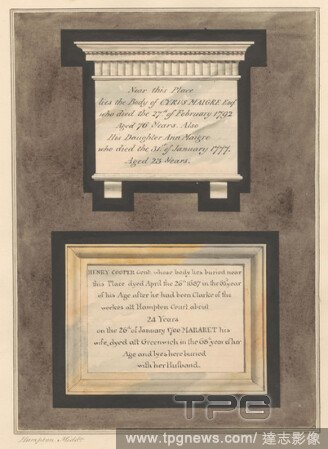 Near this Place
lies the Body of CYRUS MAIGRE Esqr
who died the 27th of February 1792
Aged 76 Years. Also
His Daughter Ann Maigre
who died the 31st of January 1777.
Aged 23 Years.
HENRY COOPER Gent. whose body lies buried near
this Place dyed April the 26th in the 66 year
of his Age after he had been Clarke of the
workes att Hampton Court about
24 Years
on the 26th of January MARABUT his
wife, dyed att Greenwich in the 68 year of her
Age and lyes here buried
with her Husband.
Hampton Middx
TPG
www.tpgnews.com/ 達志影像